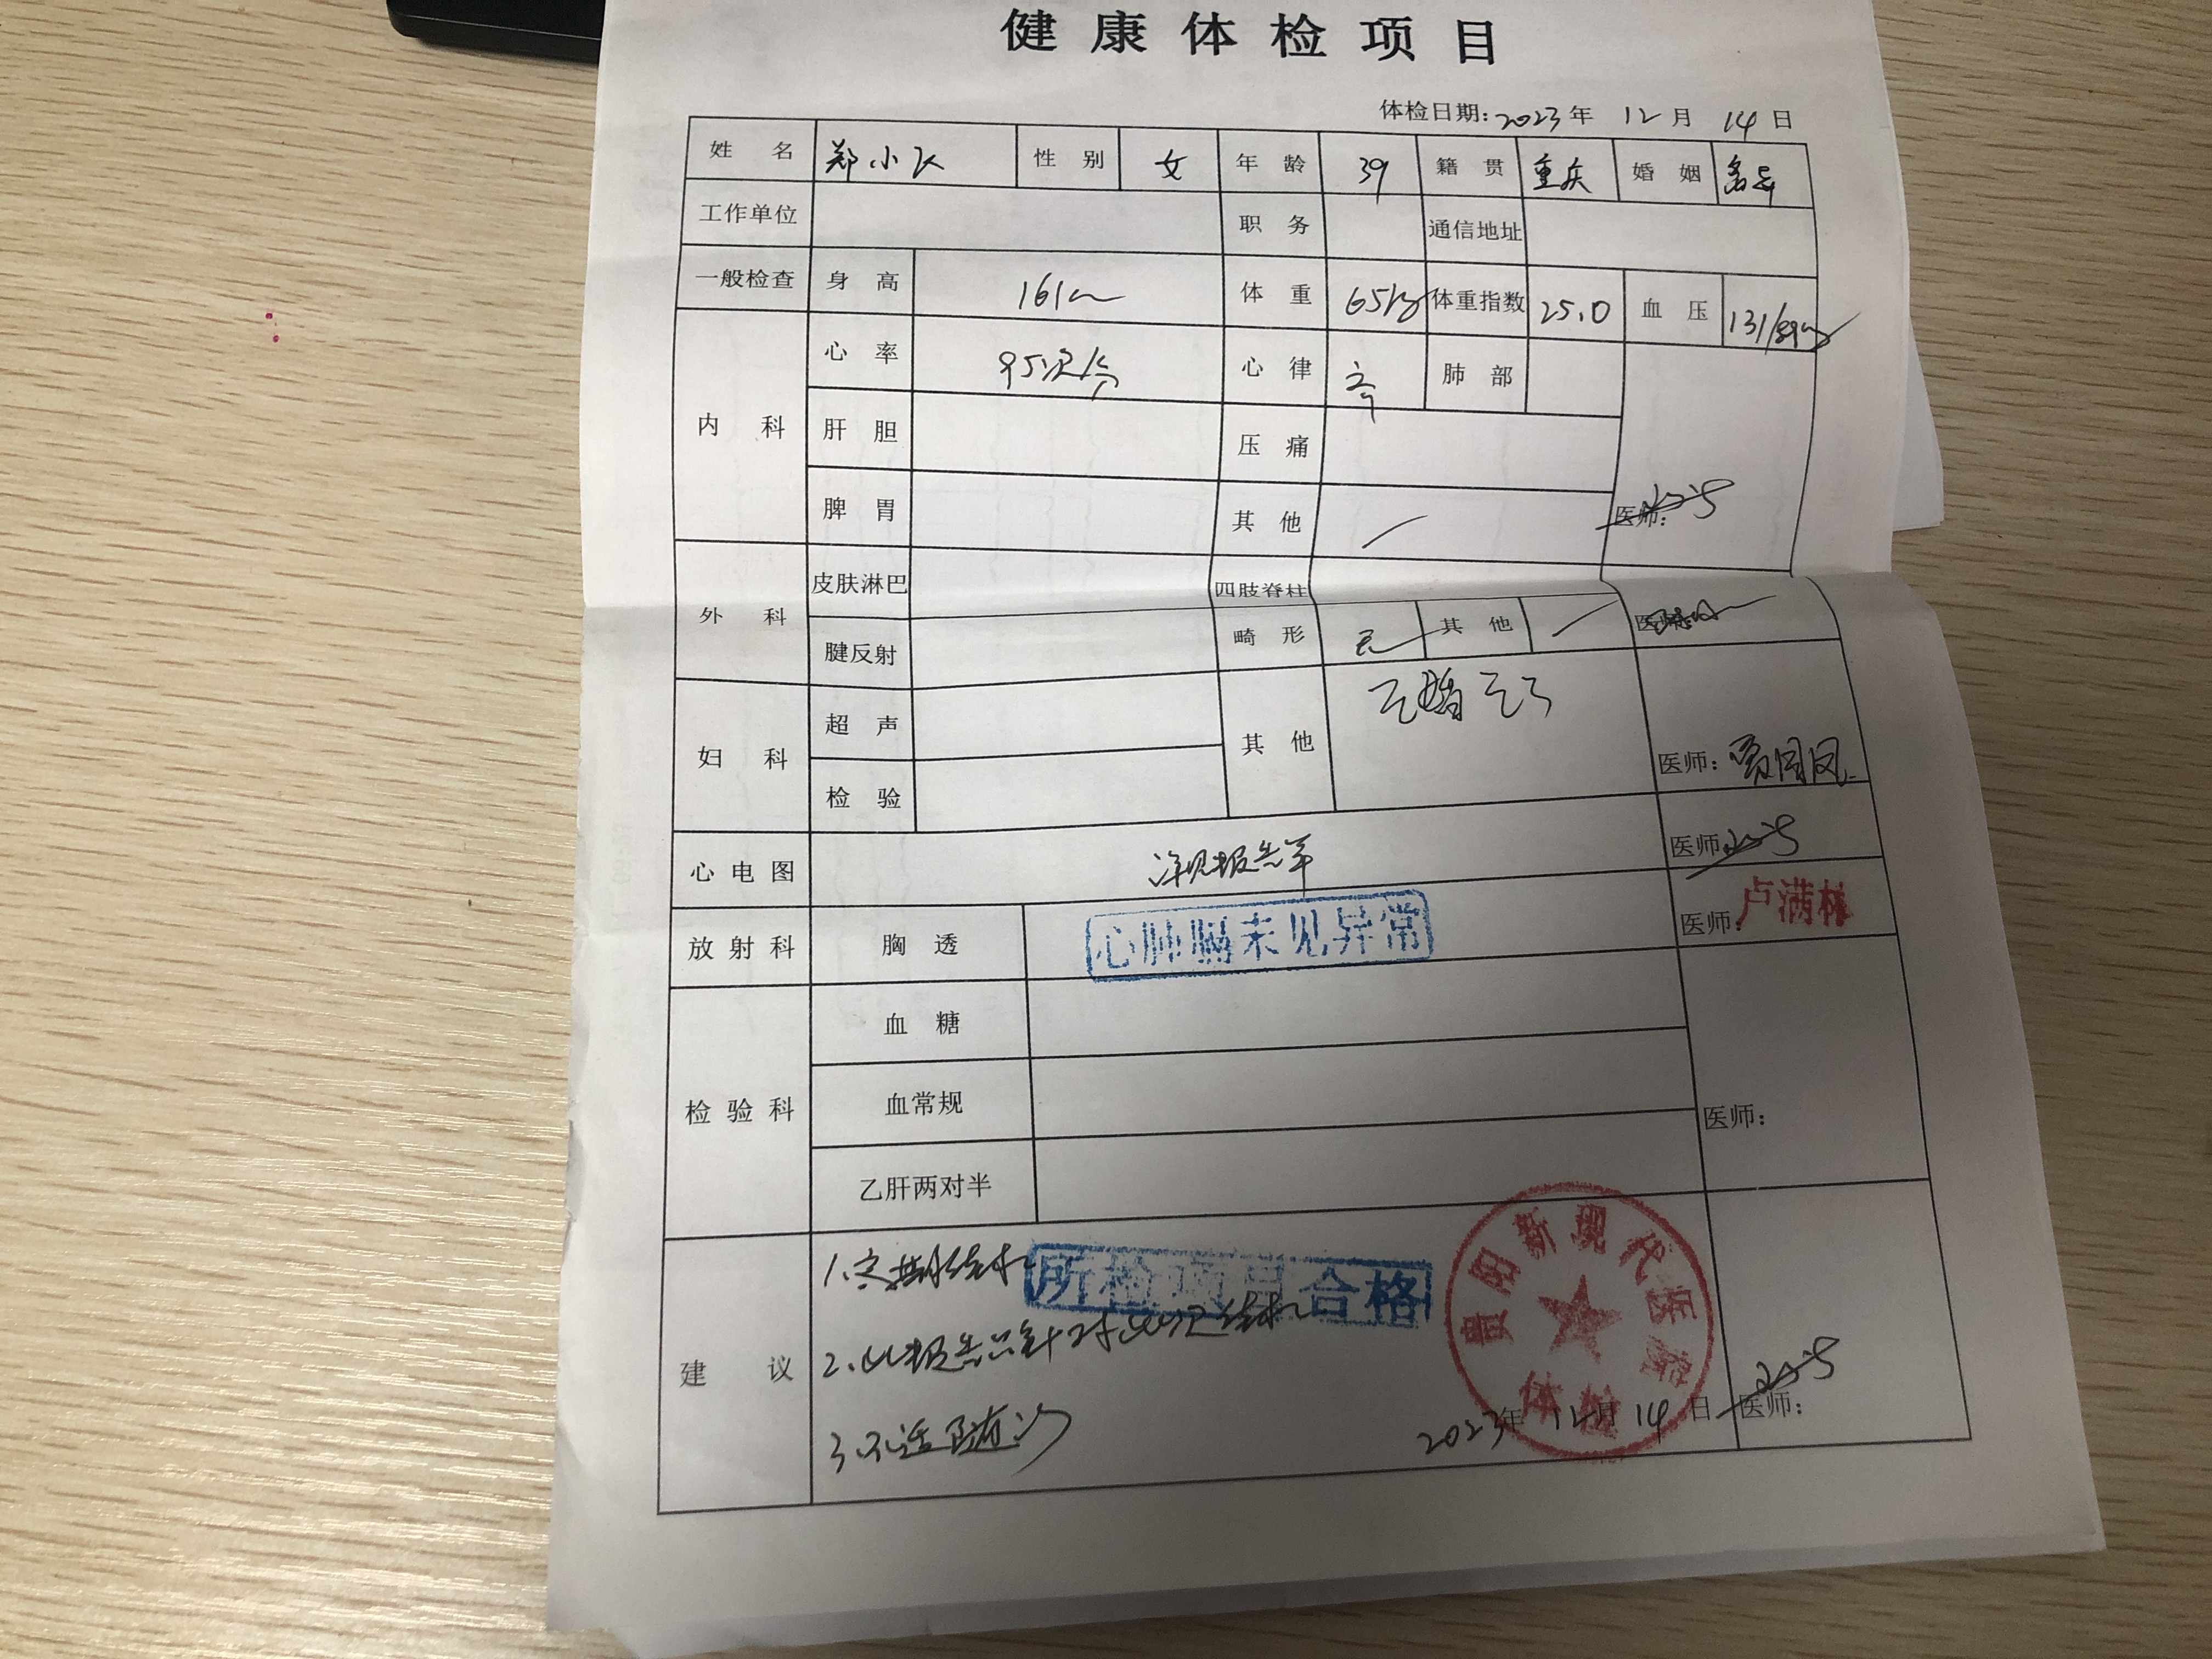 健康体检项目
体检日期：2023年 12月 14日
姓名 郑小飞 性别 女 年龄 39 籍贯 重庆 婚姻 离异
工作单位 职务 通信地址
一般检查 身高 161cm 体重 65kg 体重指数 25.0 血压 131/89
内科 心率 95次/分 心律 齐 肺部
肝胆 压痛
脾胃 其他 / 医师：
外科 皮肤淋巴 四肢脊柱
腱反射 畸形 无 其他 /
妇科 超声 其他
检验 医师：
心电图 详见报告单 医师
放射科 胸透 心肺膈未见异常 医师：卢满林
检验科 血糖
血常规 医师：
乙肝两对半
建议 1、定期体检 所检项目合格
2、此报告只针对此次体检
3、不适随诊
贵阳新现代医院
体检
2023年 12月 14日 医师：